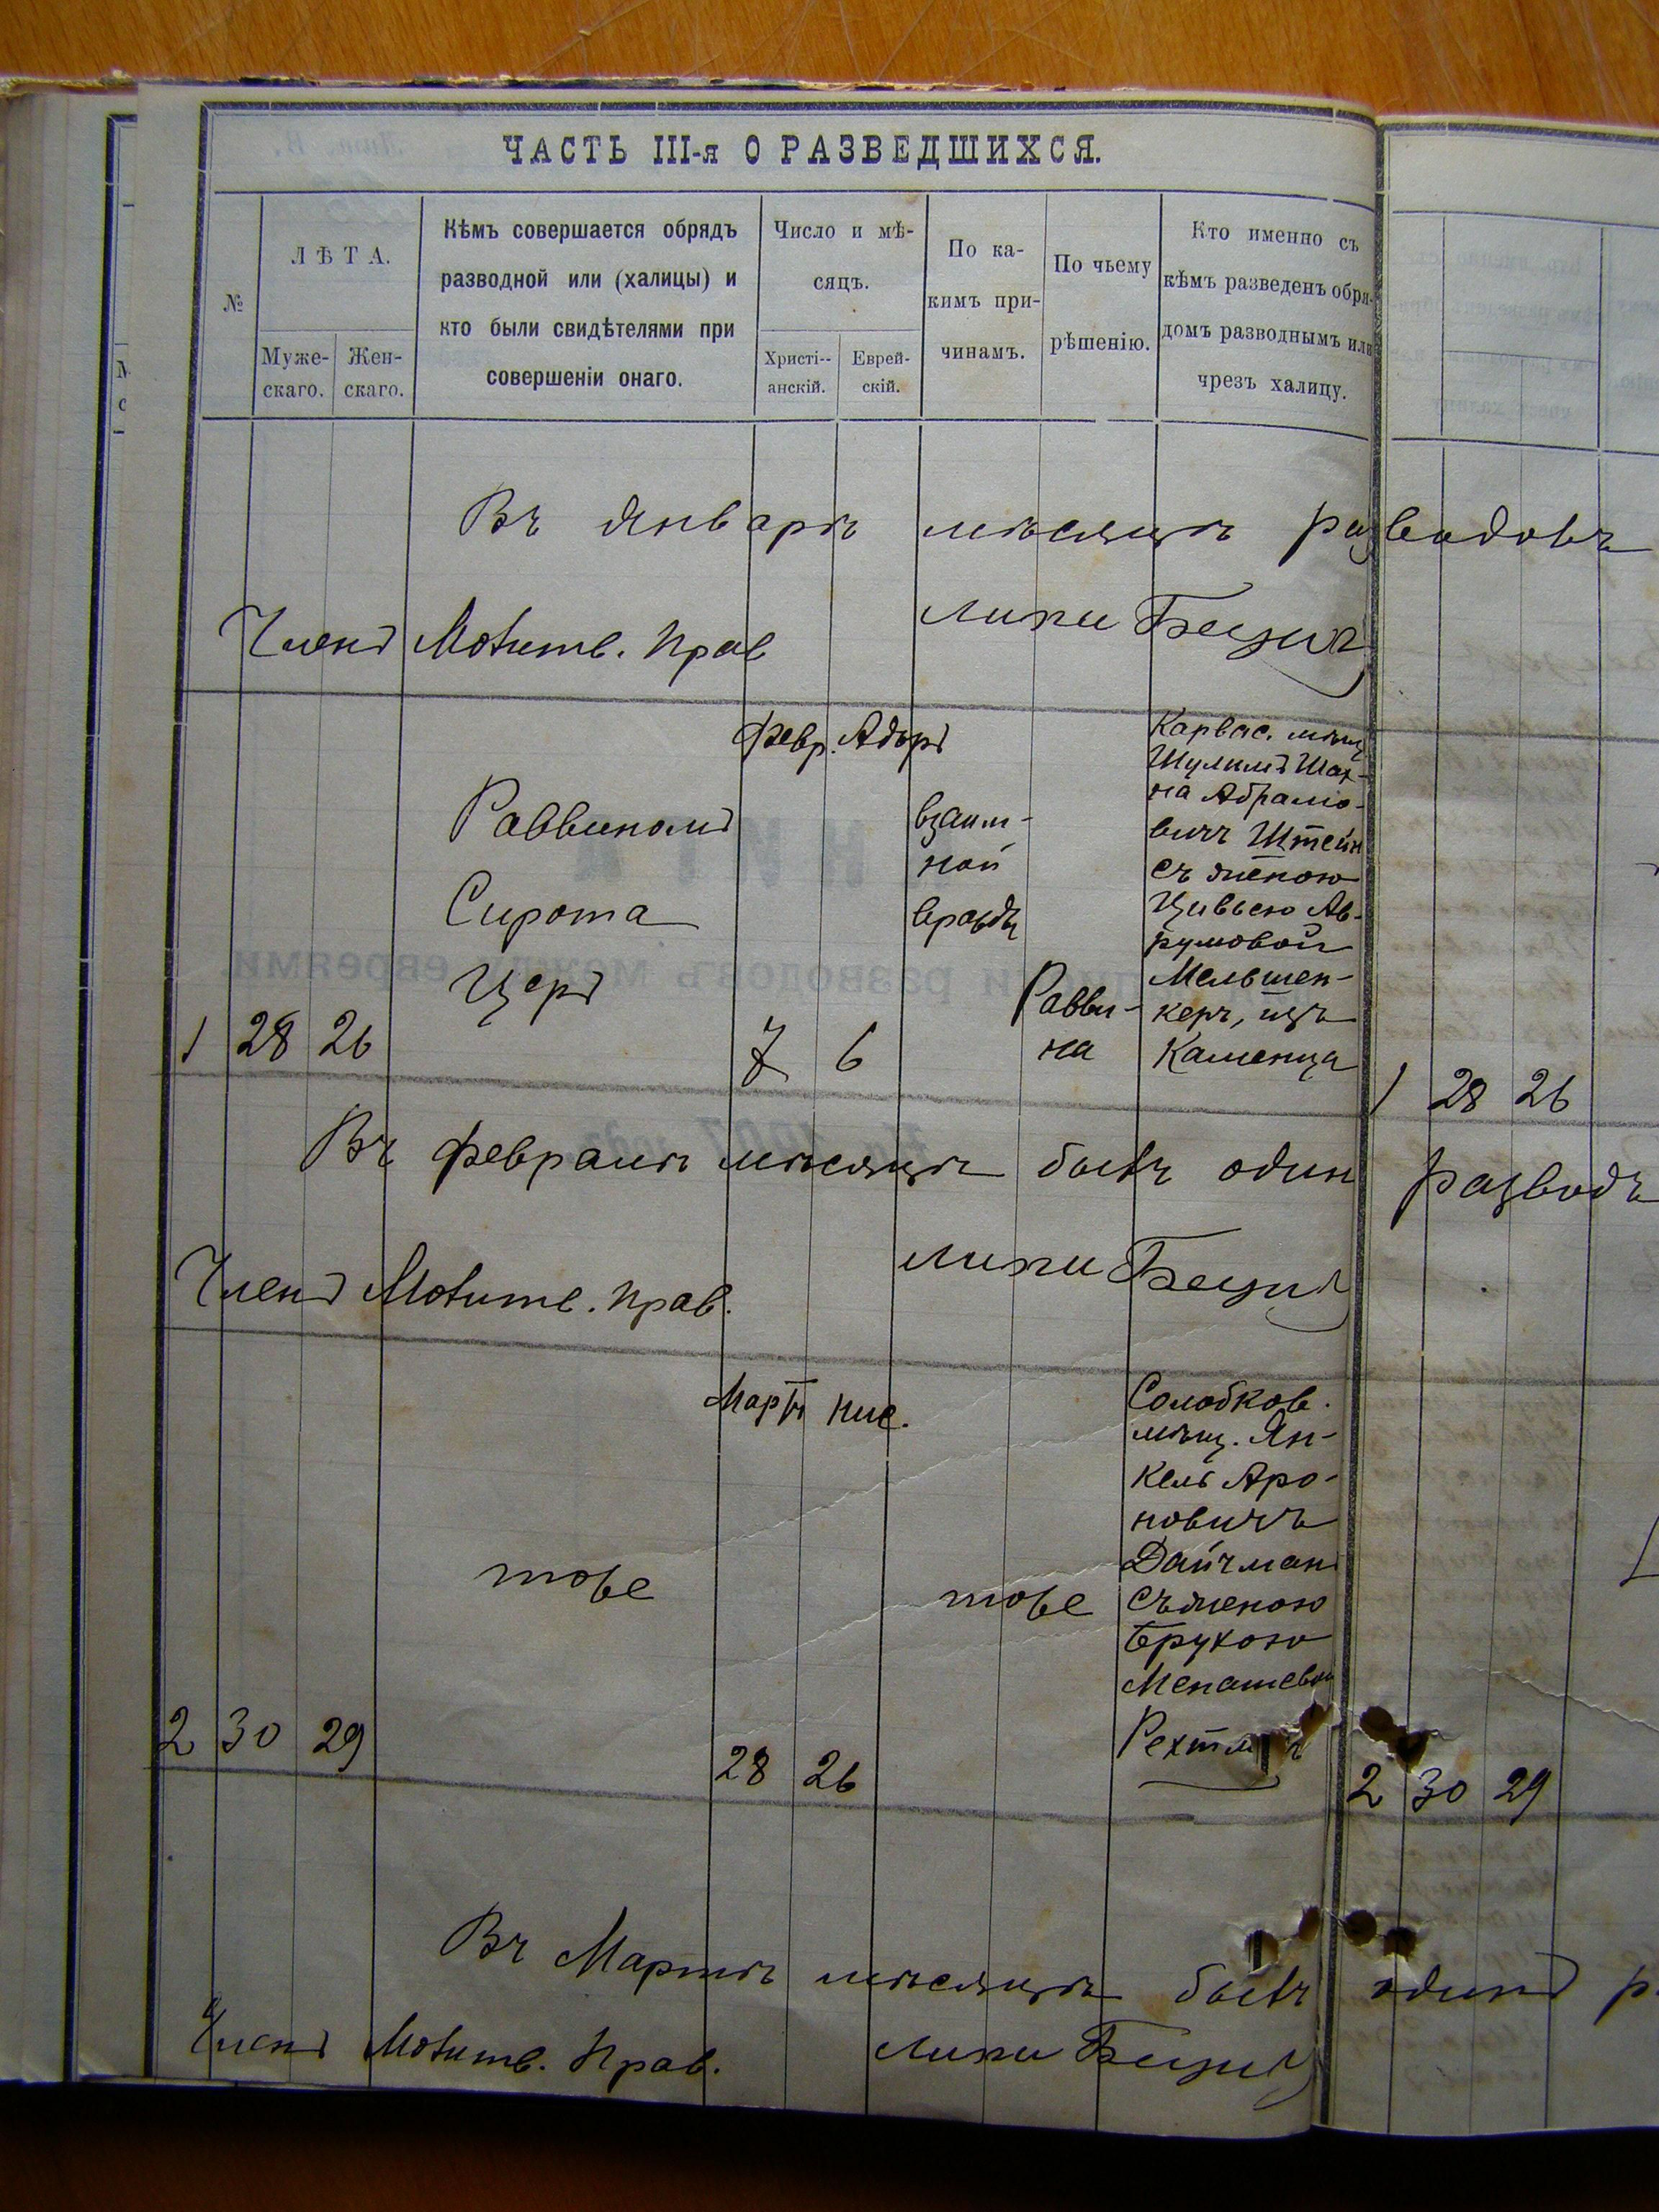 ЧАСТЬ III-я О РАЗВЕДШИХСЯ.
№
ЛѢТА.
Муже-
скаго.
Жен-
скаго.
Кѣмъ совершается обрядъ
разводной или (халицы) и
кто были свидѣтелями при
совершеніи онаго.
Число и мѣ-
сяцъ.
Христі-
анскій.
Еврей-
скій.
По ка-
кимъ при-
чинамъ.
По чьему
рѣшенію.
Кто именно съ
кѣмъ разведенъ обря-
домъ разводнымъ или
чрезъ халицу.
Въ Январѣ мѣсяцѣ разводовъ
Членъ Молитв. Прав
Февр. Адаръ
Раввиномъ
Сирота
Церъ
взаим-
ной
вражды
Равви-
на
Карвас. мѣщ
Шулимъ Шах-
на Абрамо-
вичъ Штейн
съ женою
Цивьею Ав-
румовой
Мельшен-
керъ, изъ
Каменца
1 28 26 7 6
1 28 26
Въ Февралѣ мѣсяцѣ былъ один разводъ
Членъ Молитв. Прав.
Мартъ Нис.
тоже
тоже
Солобков.
мѣщ. Ян-
кель Аро-
новичъ
Дайчманъ
съ женою
Брухою
Менашевой
2 30 29 28 26
2 30 29
Въ Мартѣ мѣсяцѣ былъ одинъ
Членъ Молитв. Прав.